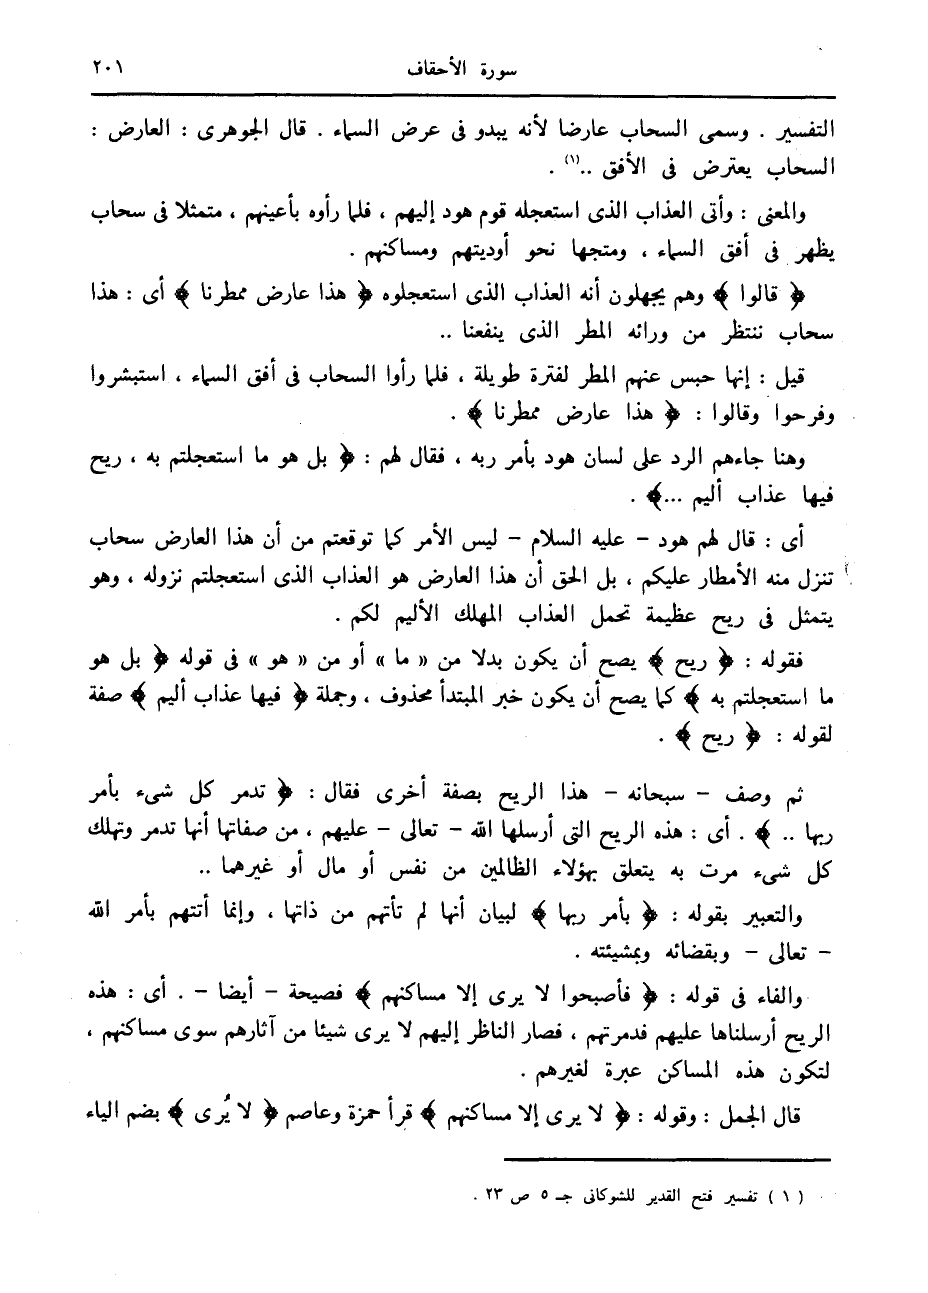 سورة الأحقاف ٢٠١
التفسير . وسمى السحاب عارضا لأنه يبدو فى عرض السماء . قال الجوهرى : العارض :
السحاب يعترض فى الأفق ..(١) .
والمعنى : وأتى العذاب الذى استعجله قوم هود إليهم ، فلما رأوه بأعينهم ، متمثلا فى سحاب
يظهر فى أفق السماء ، ومتجها نحو أوديتهم ومساكنهم .
﴿ قالوا ﴾ وهم يجهلون أنه العذاب الذى استعجلوه ﴿ هذا عارض ممطرنا ﴾ أى : هذا
سحاب ننتظر من ورائه المطر الذى ينفعنا ..
قيل : إنها حبس عنهم المطر لفترة طويلة ، فلما رأوا السحاب فى أفق السماء ، استبشروا
وفرحوا وقالوا : ﴿ هذا عارض ممطرنا ﴾ .
وهنا جاءهم الرد على لسان هود بأمر ربه ، فقال لهم : ﴿ بل هو ما استعجلتم به ، ريح
فيها عذاب أليم ...﴾ .
أى : قال لهم هود – عليه السلام – ليس الأمر كما توقعتم من أن هذا العارض سحاب
تنزل منه الأمطار عليكم ، بل الحق أن هذا العارض هو العذاب الذى استعجلتم نزوله ، وهو
يتمثل فى ريح عظيمة تحمل العذاب المهلك الأليم لكم .
فقوله : ﴿ ريح ﴾ يصح أن يكون بدلا من « ما » أو من « هو » فى قوله ﴿ بل هو
ما استعجلتم به ﴾ كما يصح أن يكون خبر المبتدأ محذوف ، وجملة ﴿ فيها عذاب أليم ﴾ صفة
لقوله : ﴿ ريح ﴾ .
ثم وصف – سبحانه – هذا الريح بصفة أخرى فقال : ﴿ تدمر كل شىء بأمر
ربها .. ﴾ . أى : هذه الريح التى أرسلها الله – تعالى – عليهم ، من صفاتها أنها تدمر وتهلك
كل شىء مرت به يتعلق بهؤلاء الظالمين من نفس أو مال أو غيرهما ..
والتعبير بقوله : ﴿ بأمر ربها ﴾ لبيان أنها لم تأتهم من ذاتها ، وإنما أتتهم بأمر الله
– تعالى – وبقضائه وبمشيئته .
والفاء فى قوله : ﴿ فأصبحوا لا يرى إلا مساكنهم ﴾ فصيحة – أيضا – . أى : هذه
الريح أرسلناها عليهم فدمرتهم ، فصار الناظر إليهم لا يرى شيئا من آثارهم سوى مساكنهم ،
لتكون هذه المساكن عبرة لغيرهم .
قال الجمل : وقوله : ﴿ لا يرى إلا مساكنهم ﴾ قرأ حمزة وعاصم ﴿ لا يُرى ﴾ بضم الياء
( ١ ) تفسير فتح القدير للشوكانى جـ ٥ ص ٢٣ .